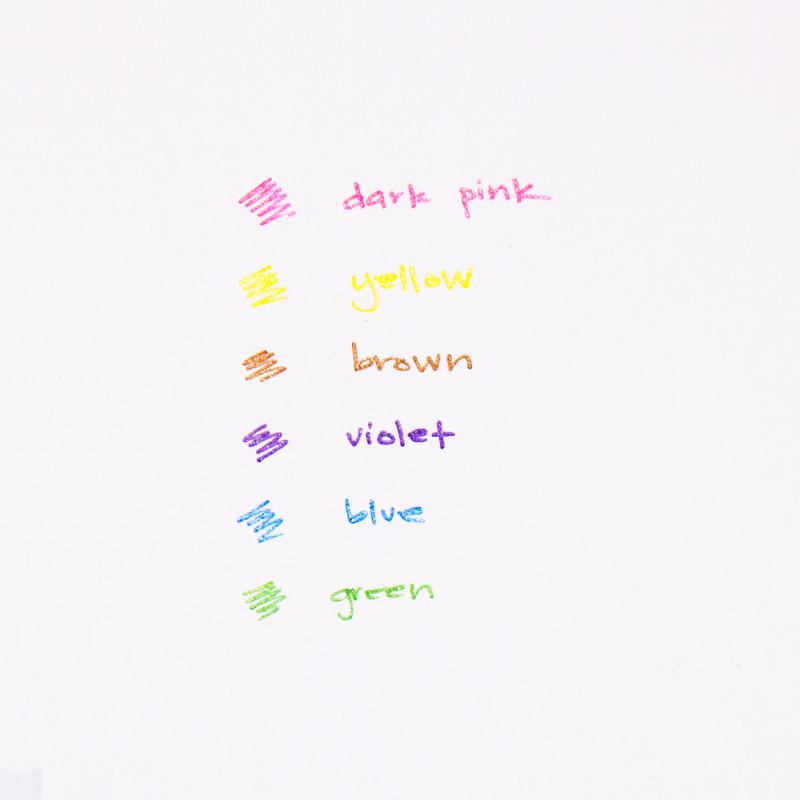 dark pink
yellow
brown
violet
blue
green